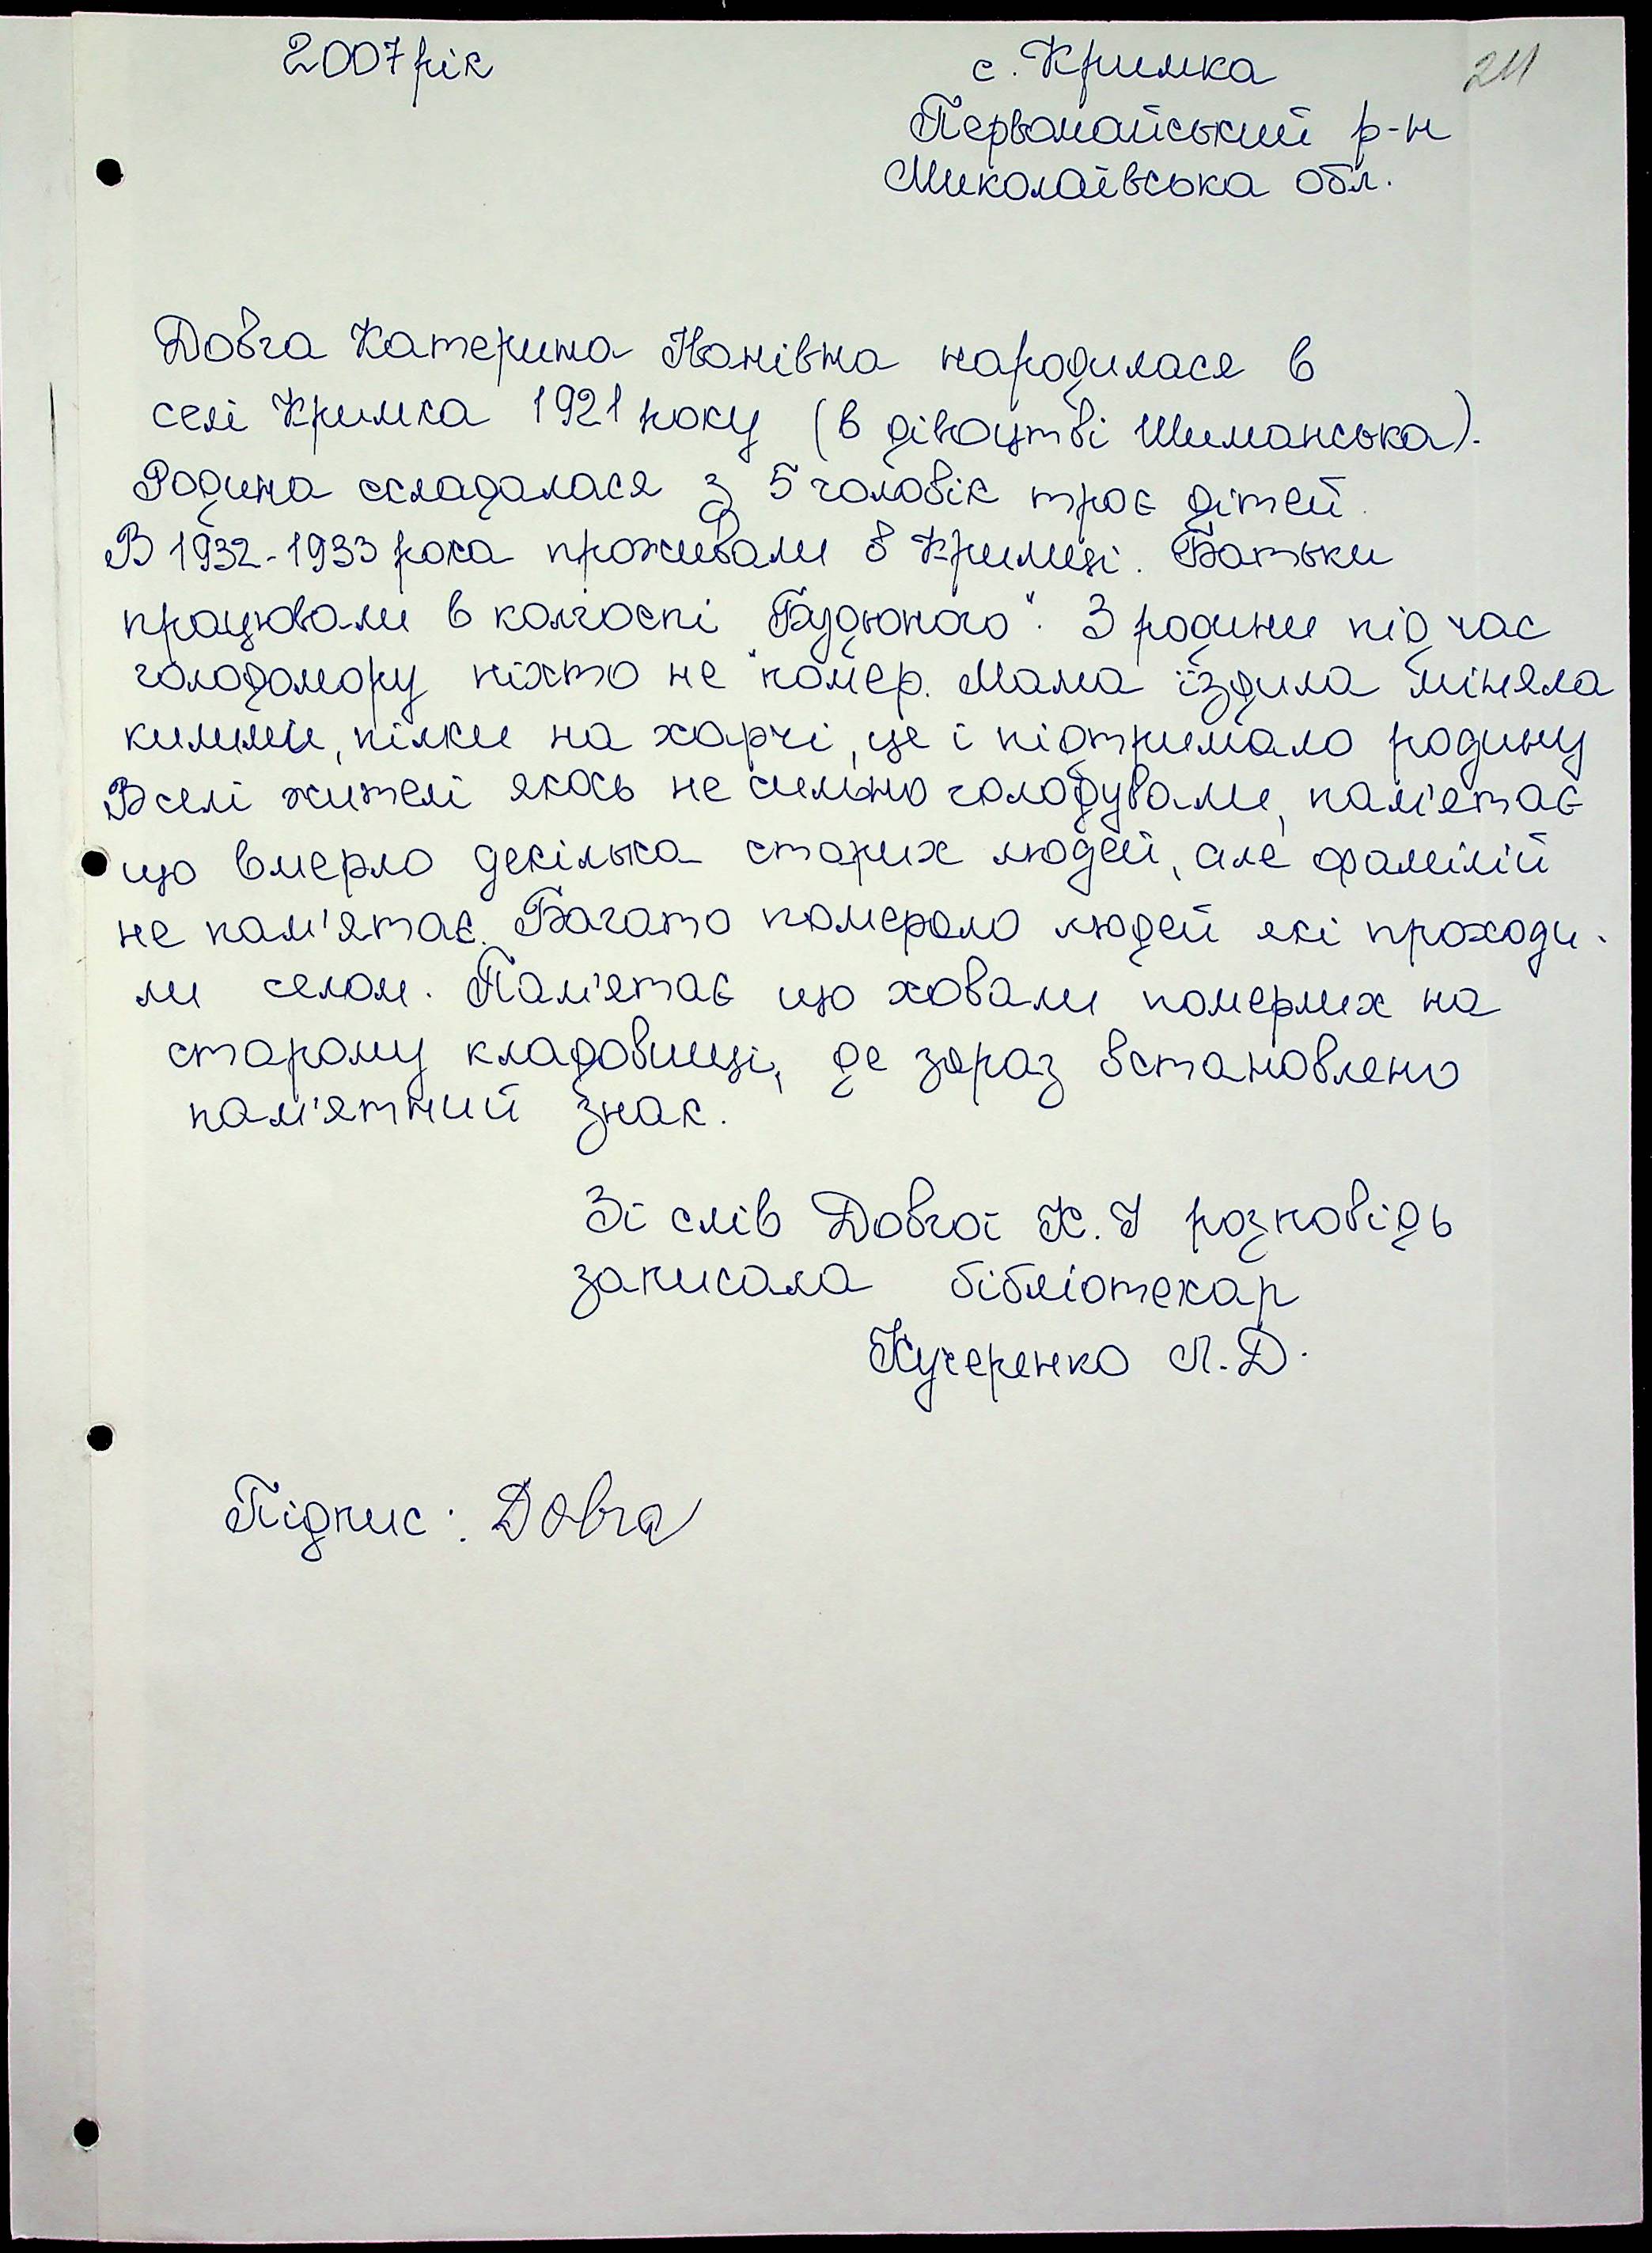 2007 рік
с. Кримка
211
Первомайський р-н
Миколаївська обл.
Довга Катерина Іванівна народилася в
селі Кримка 1921 року (в дівоцтві Шиманська).
Родина складалася з 5 чоловік троє дітей.
В 1932-1933 роках проживали в Кримці. Батьки
працювали в колгоспі "Будюного". З родини під час
голодомору ніхто не помер. Мама їздила міняла
килими, кілки на харчі, це і підтримало родину
В селі жителі якось не сильно голодували, пам'ятає
що вмерло декілька старих людей, але фамілій
не пам'ятає. Багато померало людей які проходи-
ли селом. Пам'ятає що ховали померлих на
старому кладовищі, де зараз встановлено
пам'ятний знак.
Зі слів Довгої К. І розповідь
записала бібліотекар
Кучеренко Л. Д.
Підпис: Довга